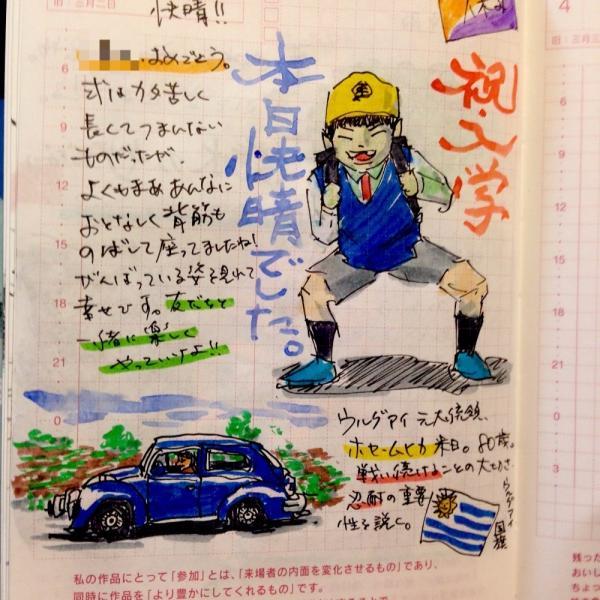 旧:三月二日
快晴!!
おめでとう。
式はカタ苦しく
長くてつまんない
ものだったが、
よくもまああんなに
おとなしく背筋も
のばして座ってましたね!
がんばっている姿を見れて
幸せです。友だちと
一緒に楽しく
やっていけよ!!
本日快晴でした。
祝・入学
6
9
12
15
18
21
0
3
ウルグアイ元大統領、
ホセ・ムヒカ来日。80歳。
戦い続けることの大切さ、
忍耐の重要
性を説く。
ウルグアイ
国旗
私の作品にとって「参加」とは、「来場者の内面を変化させるもの」であり、
同時に作品を「より豊かにしてくれるもの」です。
4
旧:三月三
6
9
12
15
18
21
0
3
残った
おいし
ちょっ